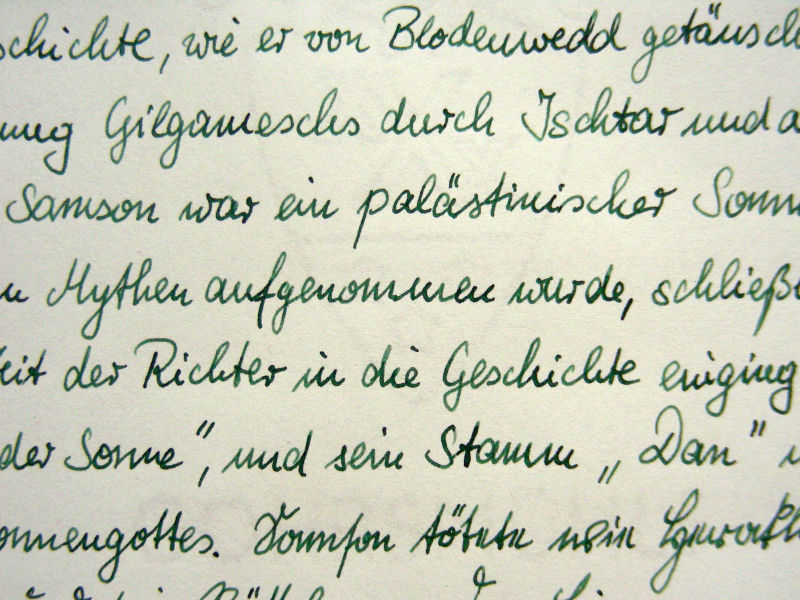 schichte, wie er von Blodenwedd getäusch
nung Gilgameschs durch Ischtar und a
Samson war ein palästinischer Sonn
n Mythen aufgenommen wurde, schließ
eit der Richter in die Geschichte einging
der Sonne", und sein Stamm „Dan"
onnengottes. Samson tötete wie